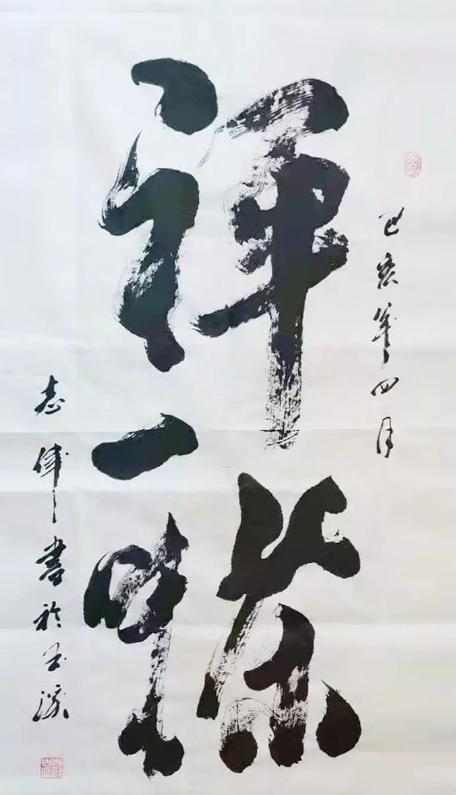 己亥年四月
禅茶
一味
志伟書於玉溪